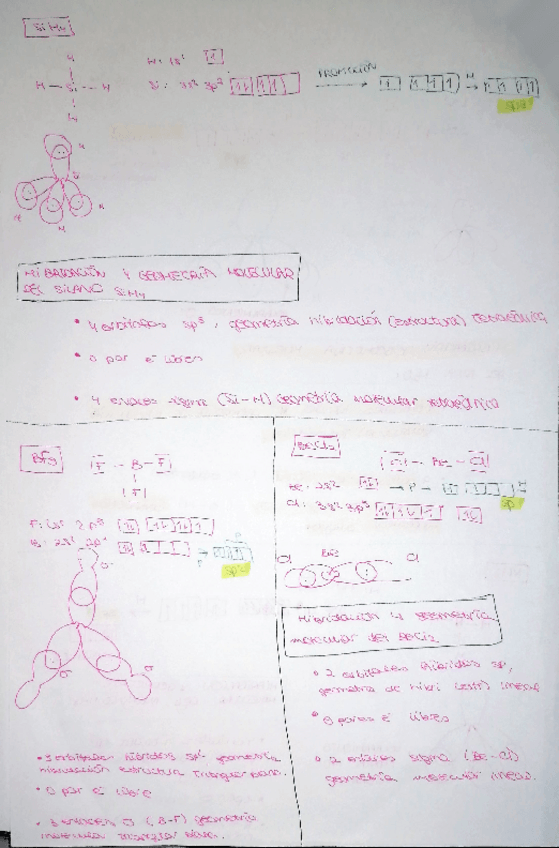 SiH4
H
H — Si — H
H
H: 1s¹ [1]
Si: 3s² 3p²
PROMOCIÓN
H
sp³
H
H H H
HIBRIDACIÓN Y GEOMETRÍA MOLECULAR
DEL SILANO SiH4
• 4 orbitales sp³, geometría hibridación (estructura) tetraédrica
• 0 par e⁻ libres
• 4 enlaces sigma (Si-H) Geometría molecular tetraédrica
BF3
F - B - F
F
F: 2s² 2p⁵
B: 2s² 2p¹
sp²
σ
σ σ
• 3 orbitales híbridos sp² geometría
hibridación estructura triangular plana.
• 0 par e⁻ libre
• 3 enlaces σ (B-F) geometría
molecular triangular plana.
BeCl2
Cl - Be - Cl
Be: 2s² → P →
Cl: 3s² 3p⁵
sp
Cl Cl
Hibridación y geometría
molecular del BeCl2
• 2 orbitales híbridos sp,
geometría de hibri (estr) lineal
• 0 pares e⁻ libres
• 2 enlaces sigma (Be-Cl)
geometría molecular lineal.